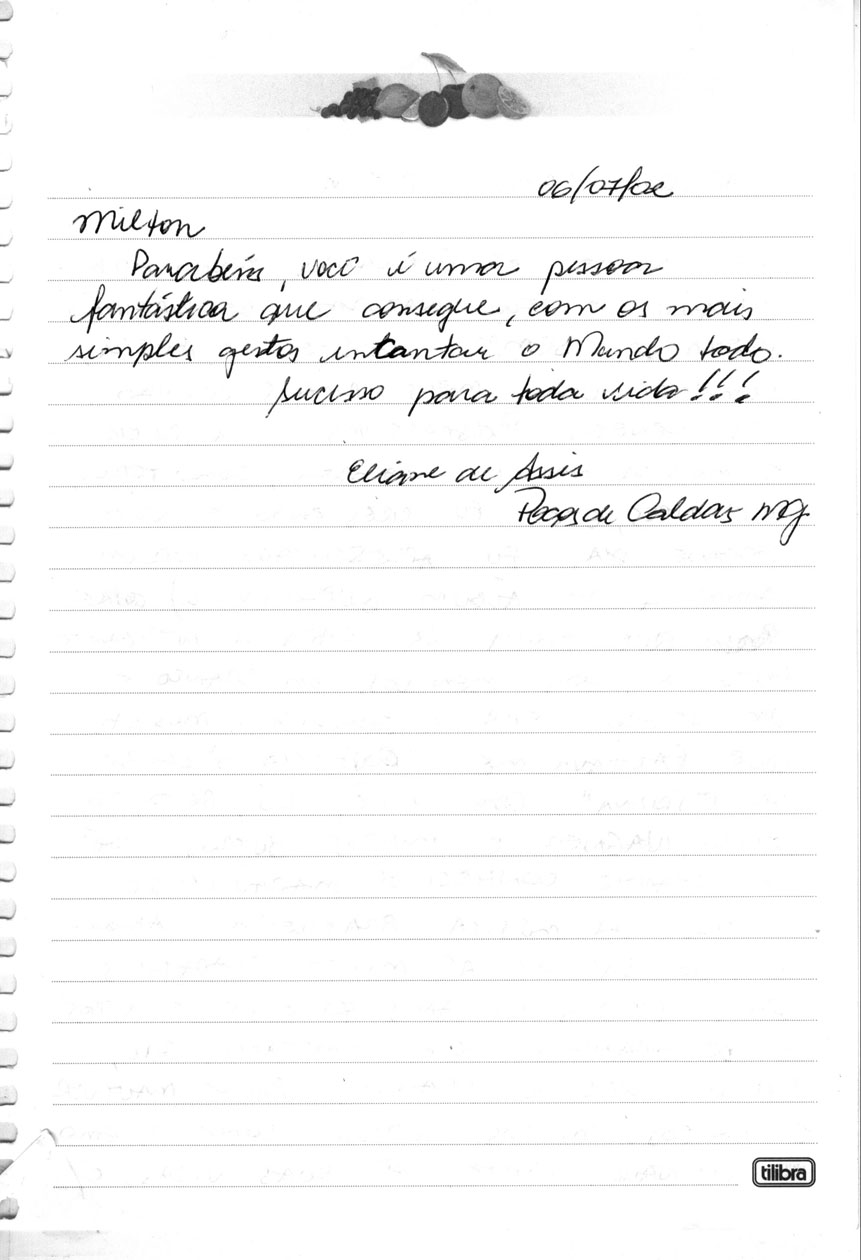 06/07/02
Milton
Parabéns, você é uma pessoa
fantástica que consegue, com os mais
simples gestos encantar o Mundo todo.
Sucesso para toda vida!!!
Eliane de Assis
Poços de Caldas MG
tilibra